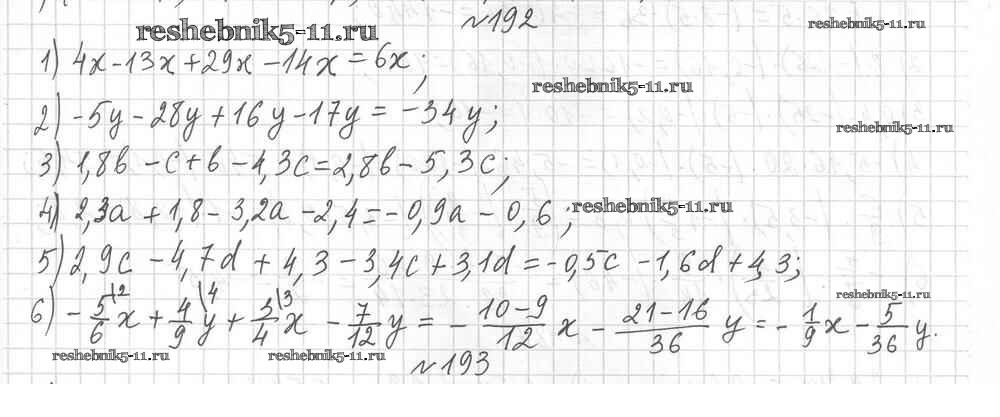 №192
reshebnik5-11.ru
reshebnik5-11.ru
1) 4x-13x+29x-14x=6x;
reshebnik5-11.ru
2) -5y-28y+16y-17y=-34y;
reshebnik5-11.ru
3) 1,8b-c+b-4,3c=2,8b-5,3c;
4) 2,3a+1,8-3,2a-2,4=-0,9a-0,6;
reshebnik5-11.ru
5) 2,9c-4,7d+4,3-3,4c+3,1d=-0,5c-1,6d+4,3;
6) -5/6\2 x+4/9\4 y+3/4\3 x-7/12 y=-(10-9)/12 x-(21-16)/36 y=-1/9 x-5/36 y.
reshebnik5-11.ru
reshebnik5-11.ru
reshebnik5-11.ru
№193